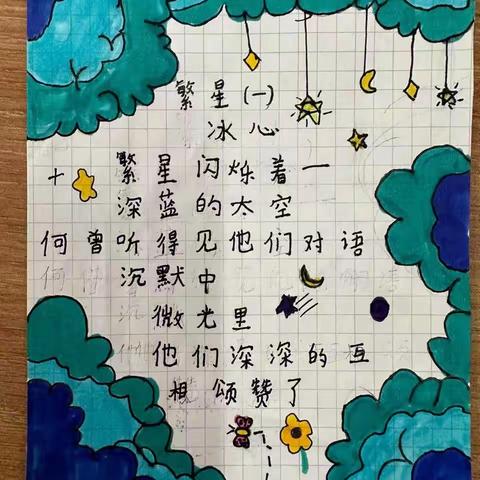 繁星(一)
冰心
繁星闪烁着一
深蓝的太空
何曾听得见他们对语
沉默中
微光里
他们深深的互
相颂赞了